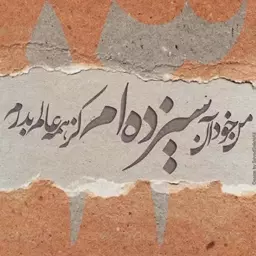 من خود آن سیزده ام کز همه عالم بدرم